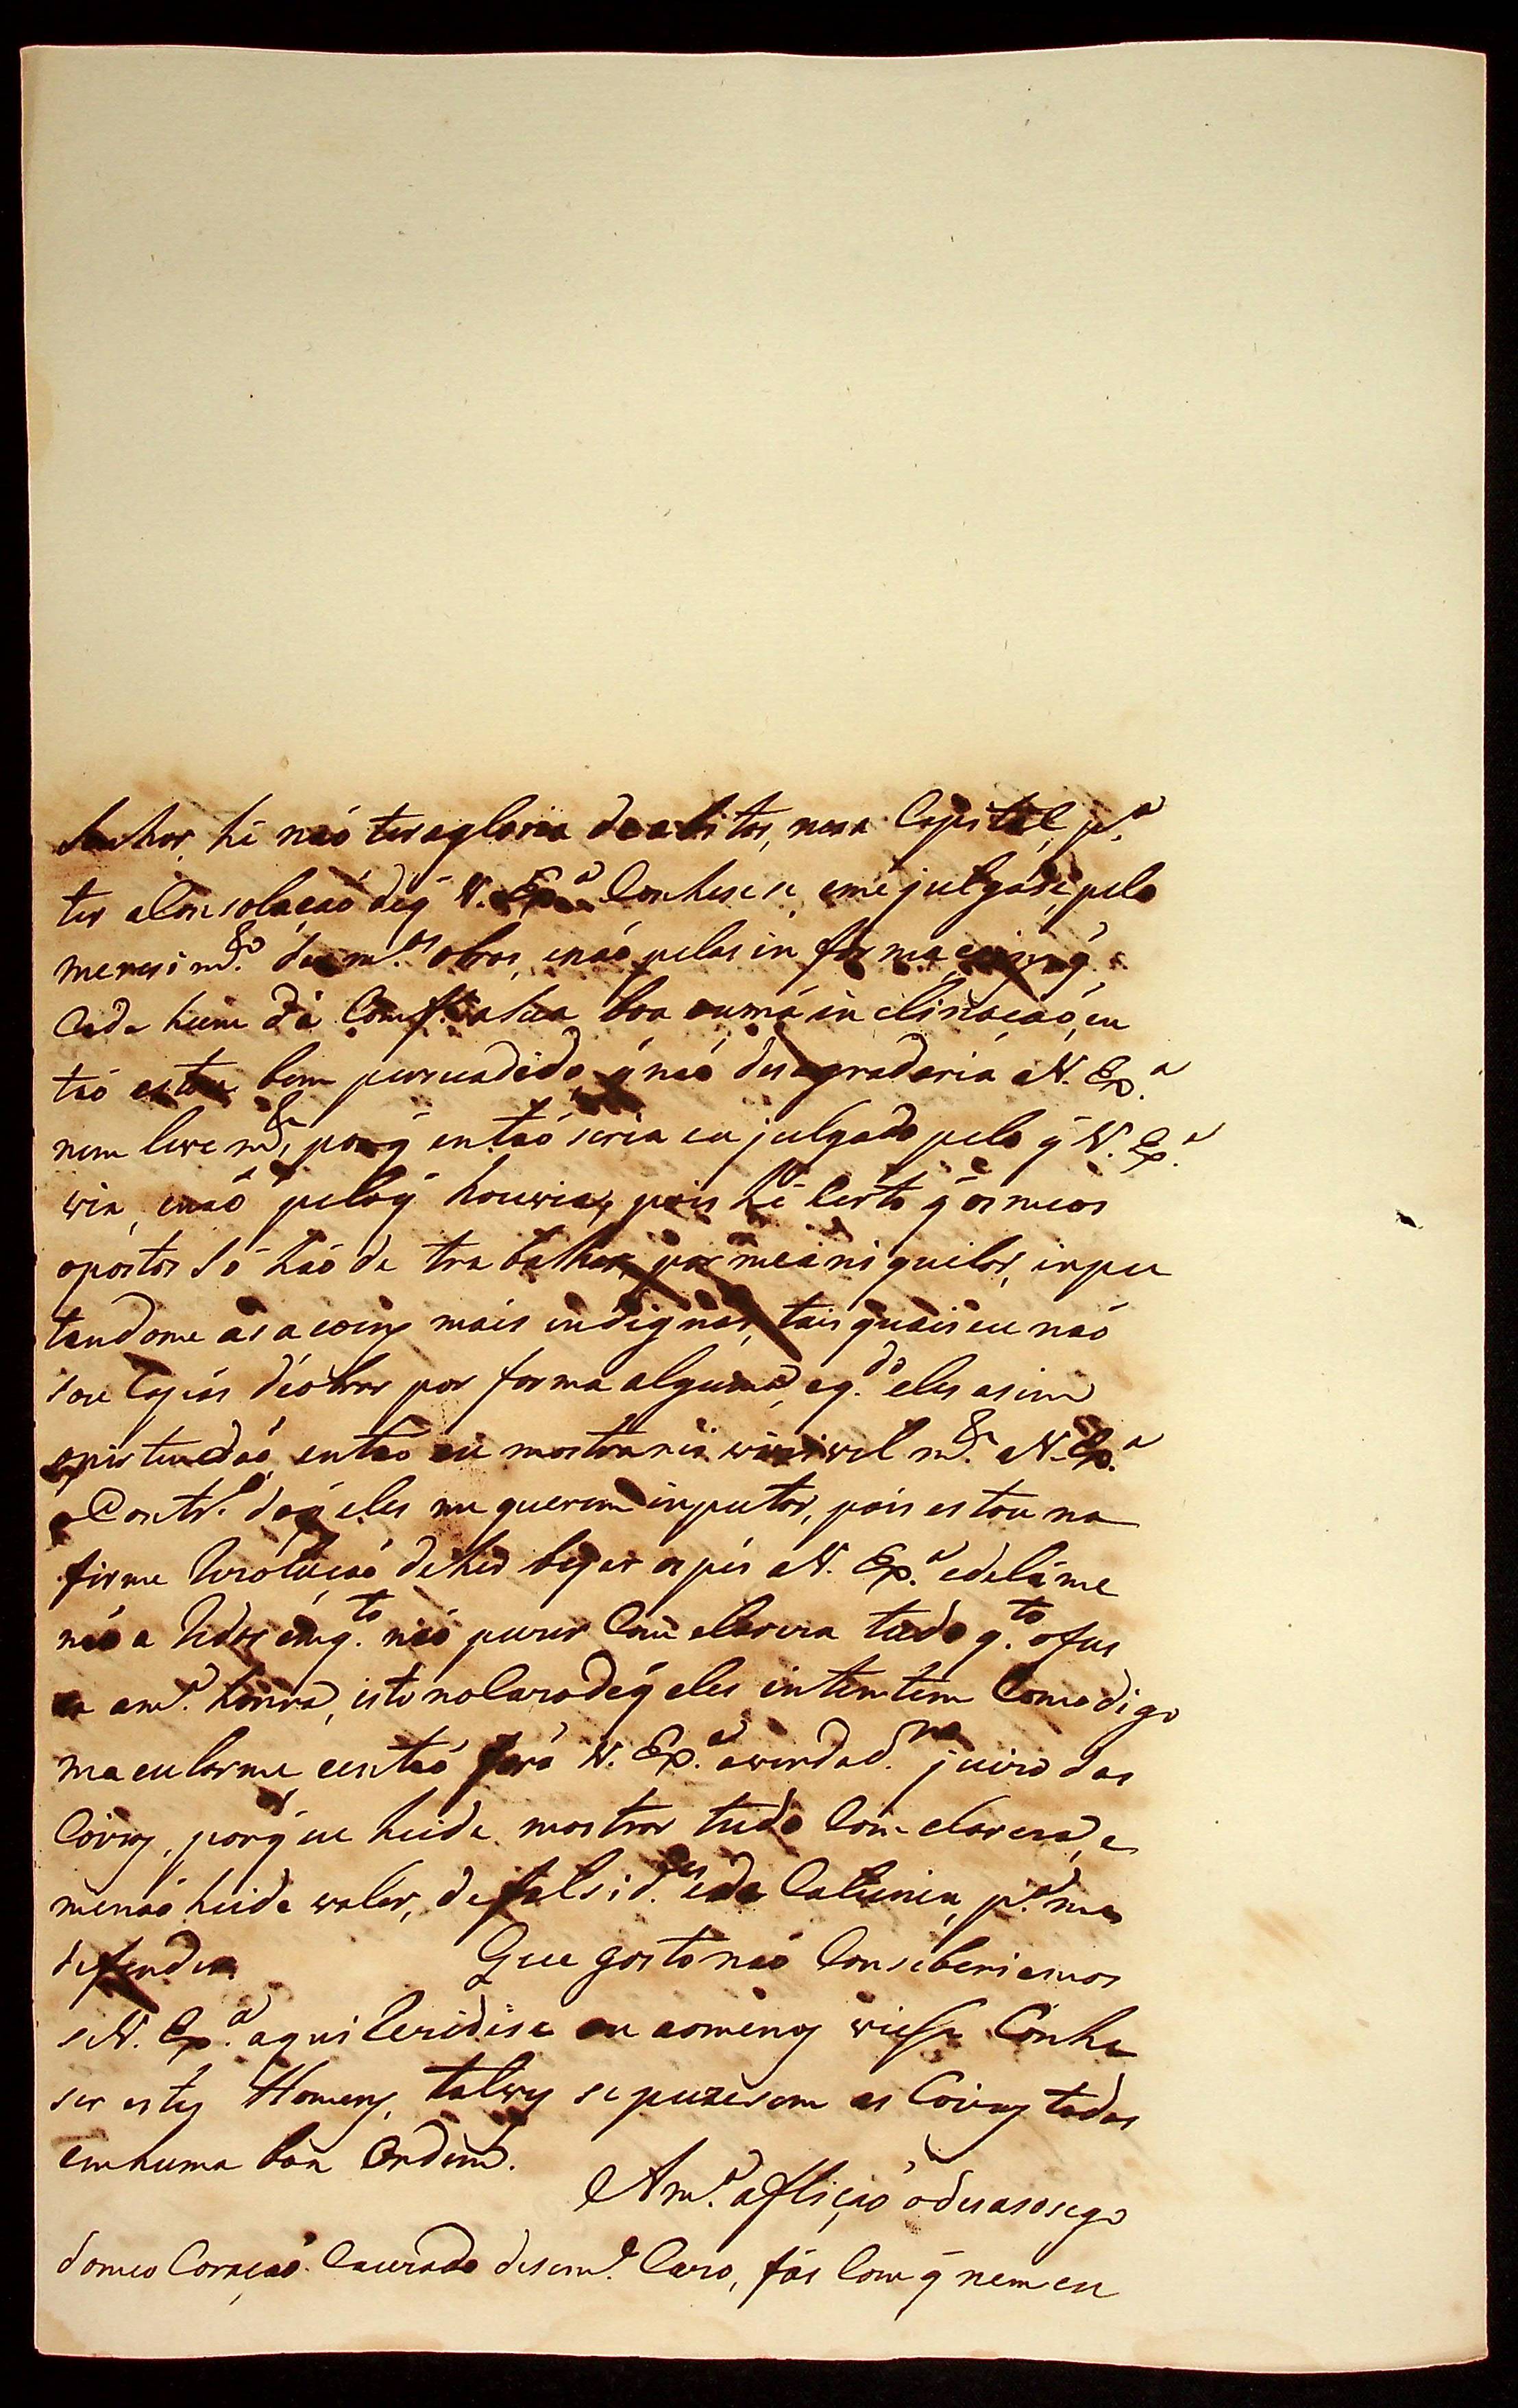 Senhor, hé naó ter agloria de abitar, nesa Capital, p.ª
ter aConsolaçaó deq̃ V. Ex.ª Conhesese, eme julgáse, pelo
meresim.to das m.as obras, enaó pelas informaçoins q̃
Cada hum dá Comf.e a sua boa ou má inclinaçaó, en
taó estou bem persuadido q̃ naó desagradaria aV. Ex.ª
nem levem.te, porq̃ entaó seria eu julgado pelo q̃ V. Ex.ª
via, enaó peloq̃ houvia, pois hé Certo q̃ os meos
opostos Só haó de trabalhar, por meaniquilar, inpu
tandome as acoins mais indignas, tais quais eu naó
sou Capás deobrar por forma alguma, eq.do eles asim
entaó eu mostraria vizivelm.te aV. Ex.ª
oContr.º doq̃ eles me querem inputar, pois estou na
firme Rezoluçaó dehir bejar os pés aV. Ex.ª edelá me
naó aRedar emq.to naó puser Com clareza tudo q.to ofus
ca am.ª honra, isto noCazo deq̃ eles intentem Como digo
macularme eentaó fará V. Ex.ª averdad.ra juizo das
Coizas, porq̃ eu heide mostrar tudo Com clareza, e
menaó heide valer, defalsid.es edeCalunia, p.ª me
defender Que gosto naó Conseberiamos
seV. Ex.ª aqui Rezidise ou aomenos viese Conhe
ser estes Homens, talves sepuzesem as Coizas todas
emhuma bôa Ordem.
Am.ª afliçaó odesasosego
domeo Coraçaó Cauzado desem.e Cazo, fás Com q̃ nem eu